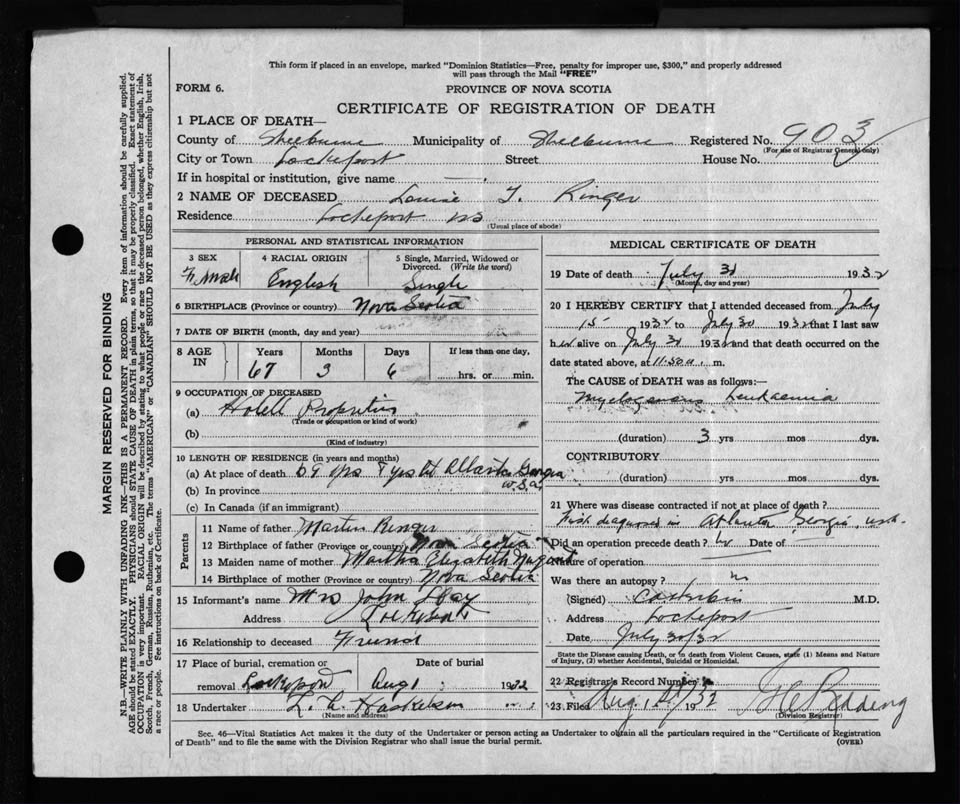 This form if placed in an envelope, marked "Dominion Statistics—Free, penalty for improper use, $300," and properly addressed
will pass through the Mail "FREE"
FORM 6.
PROVINCE OF NOVA SCOTIA
CERTIFICATE OF REGISTRATION OF DEATH
1 PLACE OF DEATH—
County of Shelburne Municipality of Shelburne Registered No. 903
(For use of Registrar General only)
City or Town Lockeport Street House No.
If in hospital or institution, give name
2 NAME OF DECEASED Louise T. Ringer
Residence Lockeport NS
(Usual place of abode)
PERSONAL AND STATISTICAL INFORMATION
3 SEX
Female
4 RACIAL ORIGIN
English
5 Single, Married, Widowed or
Divorced. (Write the word)
Single
6 BIRTHPLACE (Province or country) Nova Scotia
7 DATE OF BIRTH (month, day and year)
8 AGE
IN
Years Months Days If less than one day,
67 3 6 hrs. or min.
9 OCCUPATION OF DECEASED
(a) Hotell
(Trade or occupation or kind of work)
(b)
(Kind of industry)
10 LENGTH OF RESIDENCE (in years and months)
(a) At place of death 59 yrs 8 yrs at Atlanta Georgia
U.S.A.
(b) In province
(c) In Canada (if an immigrant)
Parents
11 Name of father Martin Ringer
12 Birthplace of father (Province or country) Nova Scotia
13 Maiden name of mother Martha Elizabeth
14 Birthplace of mother (Province or country) Nova Scotia
15 Informant's name Mrs John
Address Lockeport
16 Relationship to deceased Friend
17 Place of burial, cremation or
removal Lockeport
Date of burial
Aug 1 1932
18 Undertaker L. A.
(Name and address)
MEDICAL CERTIFICATE OF DEATH
19 Date of death July 30 1932
(Month, day and year)
20 I HEREBY CERTIFY that I attended deceased from July
15 1932 to July 30 1932 that I last saw
her alive on July 30 1932 and that death occurred on the
date stated above, at 11.50 a. m.
The CAUSE of DEATH was as follows:—
Myelogenous Leukaemia
(duration) 3 yrs mos dys.
CONTRIBUTORY
(duration) yrs mos dys.
21 Where was disease contracted if not at place of death?
First diagnosed in Atlanta Georgia USA.
Did an operation precede death? No Date of
Nature of operation
Was there an autopsy? no
(Signed) M.D.
Address Lockeport
Date July 30/32
State the Disease causing Death, or in death from Violent Causes, state (1) Means and Nature
of Injury, (2) whether Accidental, Suicidal or Homicidal.
22 Registrar's Record Number
23 Filed Aug. 1932
(Division Registrar)
Sec. 46—Vital Statistics Act makes it the duty of the Undertaker or person acting as Undertaker to obtain all the particulars required in the "Certificate of Registration
of Death" and to file the same with the Division Registrar who shall issue the burial permit.
(OVER)
MARGIN RESERVED FOR BINDING
N.B.—WRITE PLAINLY WITH UNFADING INK—THIS IS A PERMANENT RECORD. Every item of information should be carefully supplied.
AGE should be stated EXACTLY. PHYSICIANS should STATE CAUSE OF DEATH in plain terms, so that it may be properly classified. Exact statement of
OCCUPATION is very important. RACIAL ORIGIN will be described by stating to what people or race the deceased person belonged, whether English, Irish,
Scotch, French, German, Russian, Ruthenian, etc. The terms "AMERICAN" or "CANADIAN" SHOULD NOT BE USED as they express citizenship but not
a race or people. See instructions on back of Certificate.